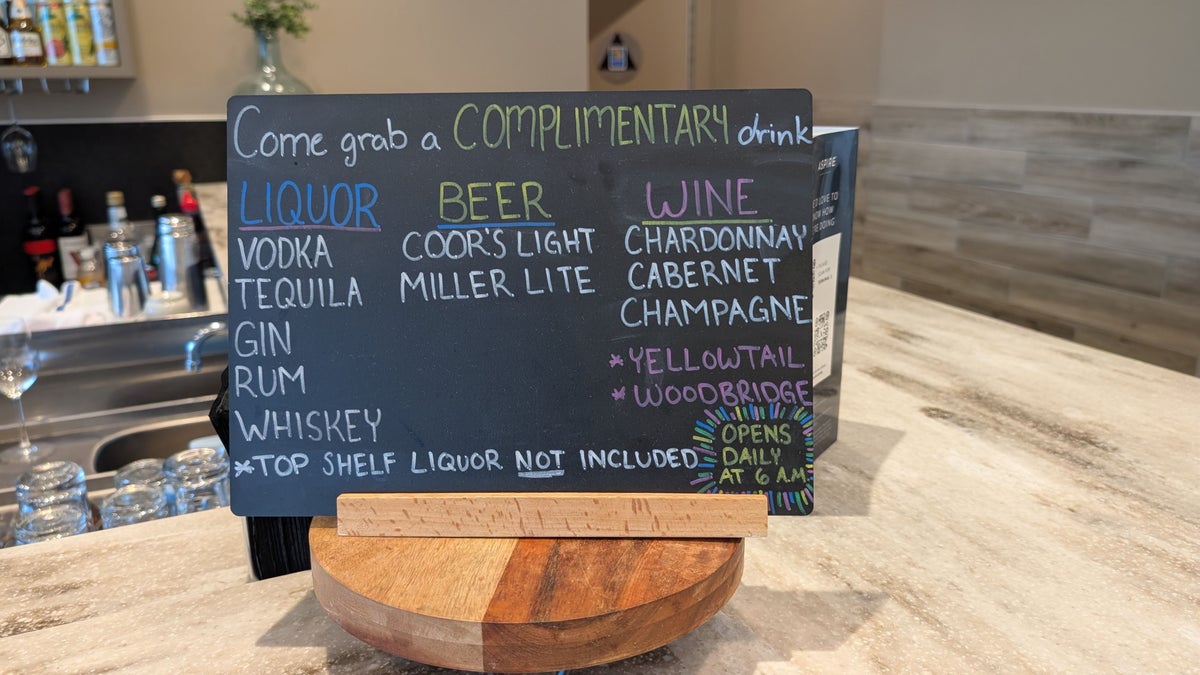 Come grab a COMPLIMENTARY drink
LIQUOR
VODKA
TEQUILA
GIN
RUM
WHISKEY
BEER
COOR'S LIGHT
MILLER LITE
WINE
CHARDONNAY
CABERNET
CHAMPAGNE
*YELLOWTAIL
*WOODBRIDGE
*TOP SHELF LIQUOR NOT INCLUDED
OPENS
DAILY
AT 6 A.M.
ASPIRE
LOVE TO
HOW
DOING